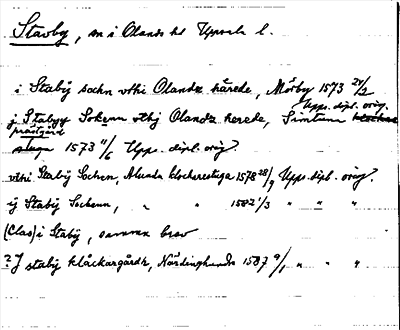 Stavby, sn i Olands hd Uppsala l.
i Stabÿ sochn vthi Olandz härede, Mörby 1573 24/2
Upps. dipl. orig.
j Stabyy Sokenn vthj Olandz herede, Simtuna
prästgård
stuga 1573 11/6 Upps. dipl. orig.
vthi Stabÿ Sochen, Alunda klockerestuga 1578 28/9 Upps. dipl. orig.
ij Stabÿ Sockenn, " " 1582 1/3 " " "
(Clas) i Stabÿ, samma brev
? J stabÿ klåckargårdh, Närdinghundra 1587 9/1 " " "